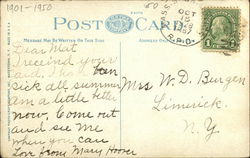 1901-1950
50
POST CARD
MESSAGE MAY BE WRITTEN ON THIS SIDE
ADDRESS
Dear Mat
I received your
card, I have been
sick all summer
am a little better
now, Come out
and see me
when you can
Love from Mary Hoover
OCT
R.P.O.
1
Mrs W. D. Burgen
Limerick.
N.Y.